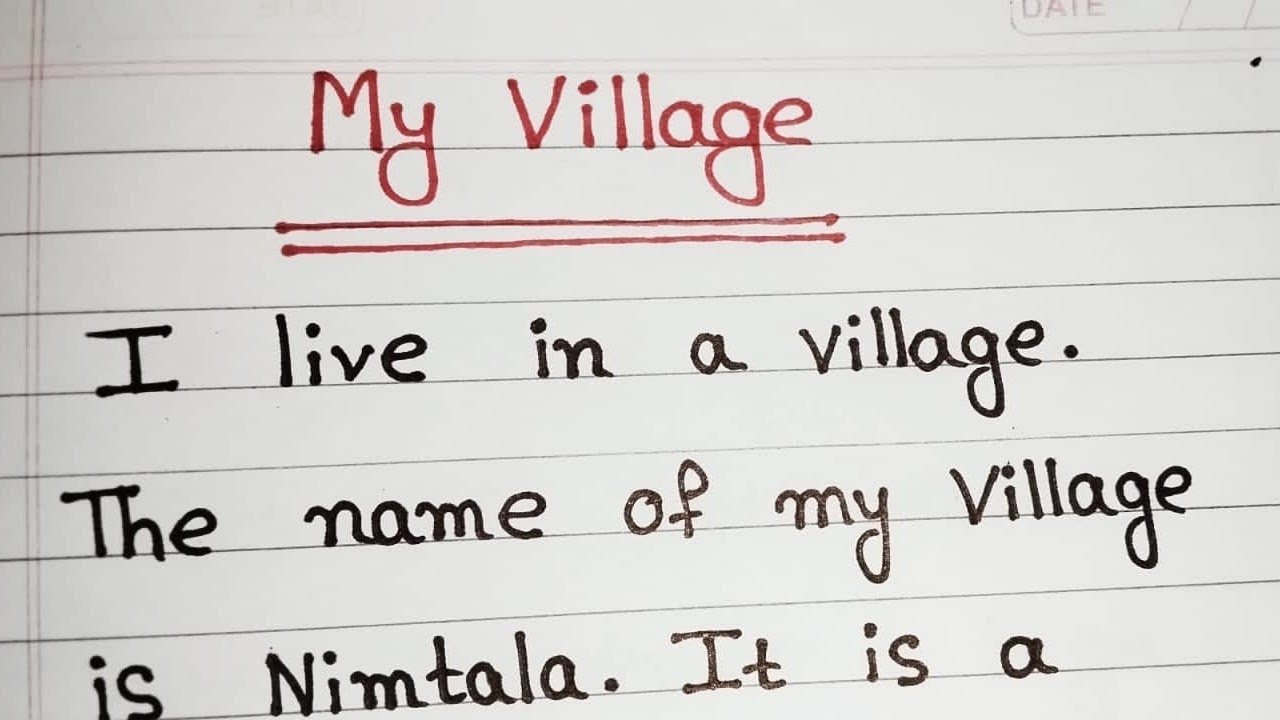 DATE
My Village
I live in a village.
The name of my Village
is Nimtala. It is a